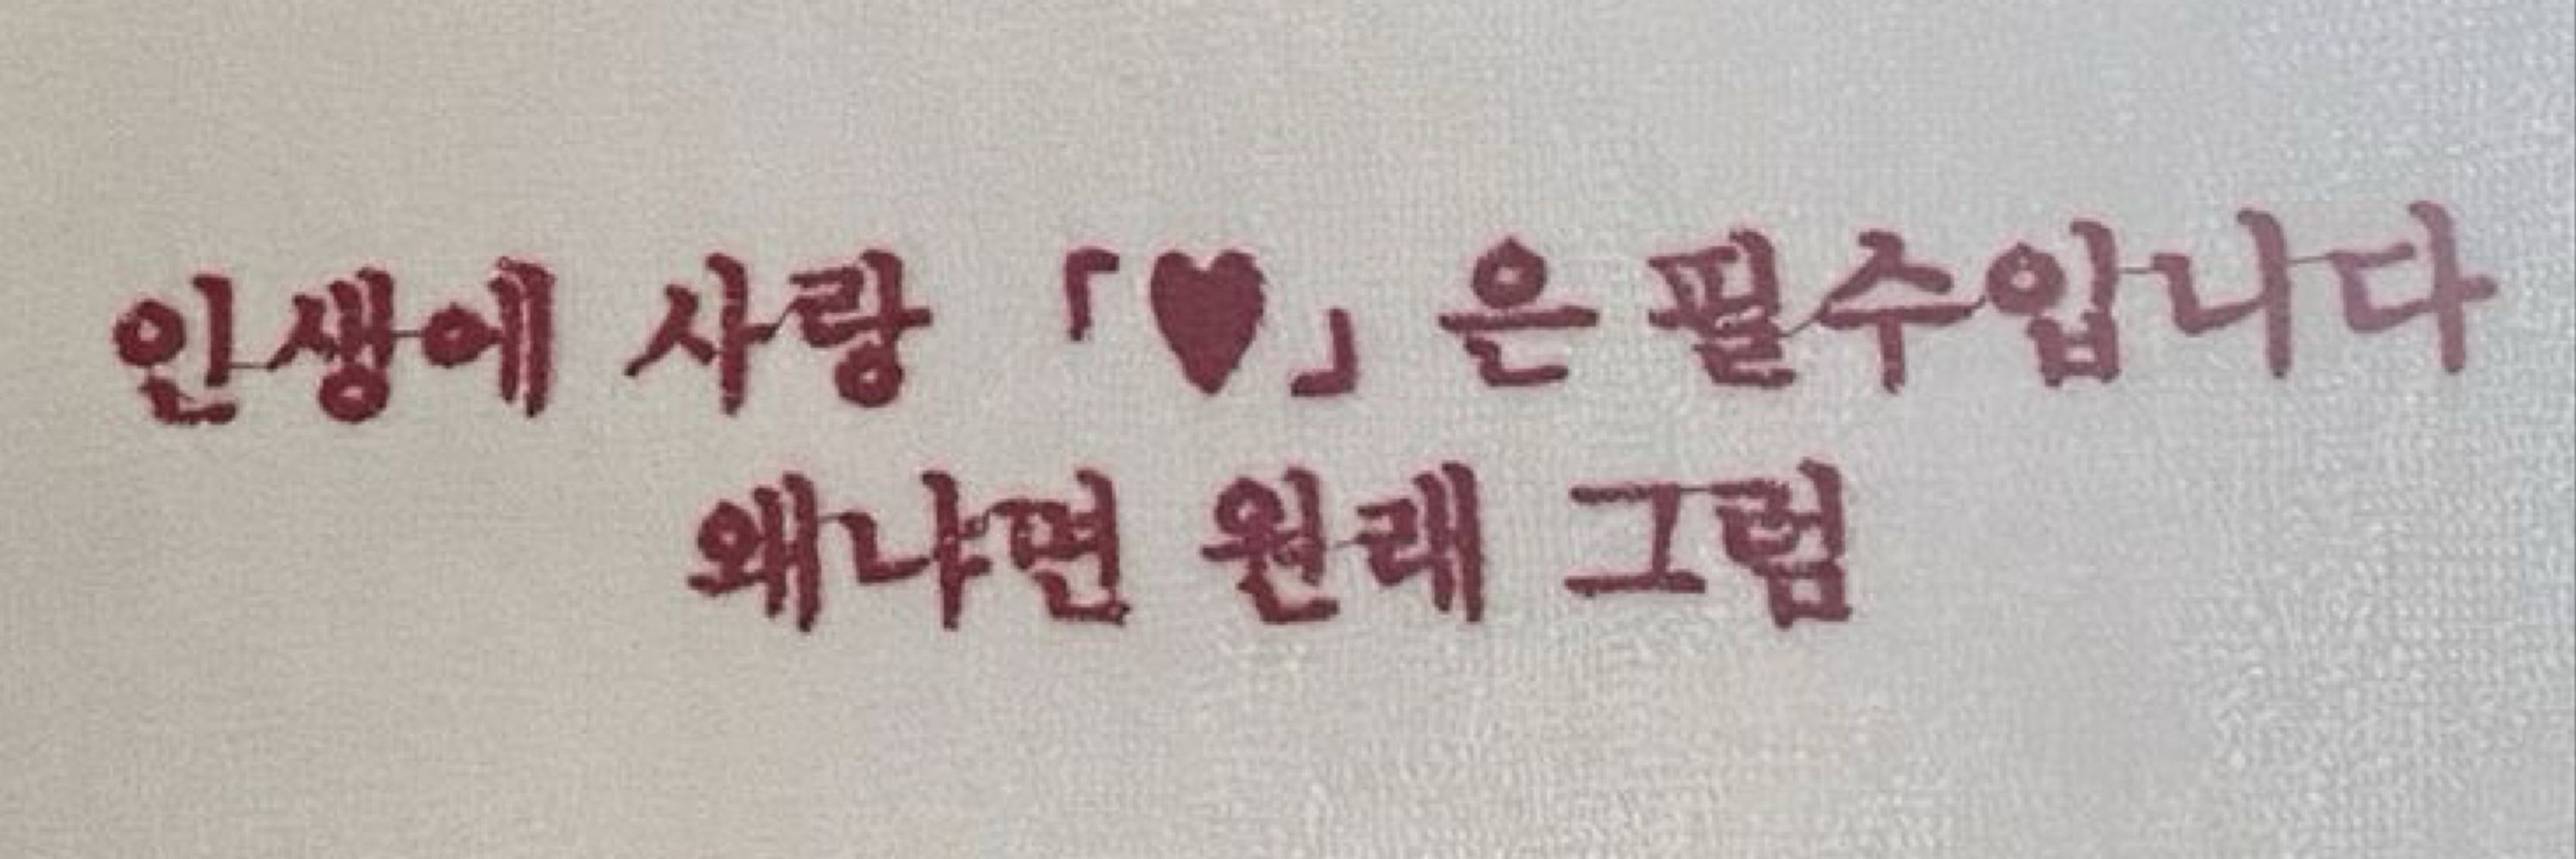 인생에 사랑 「♥」 은 필수입니다
왜냐면 원래 그럼